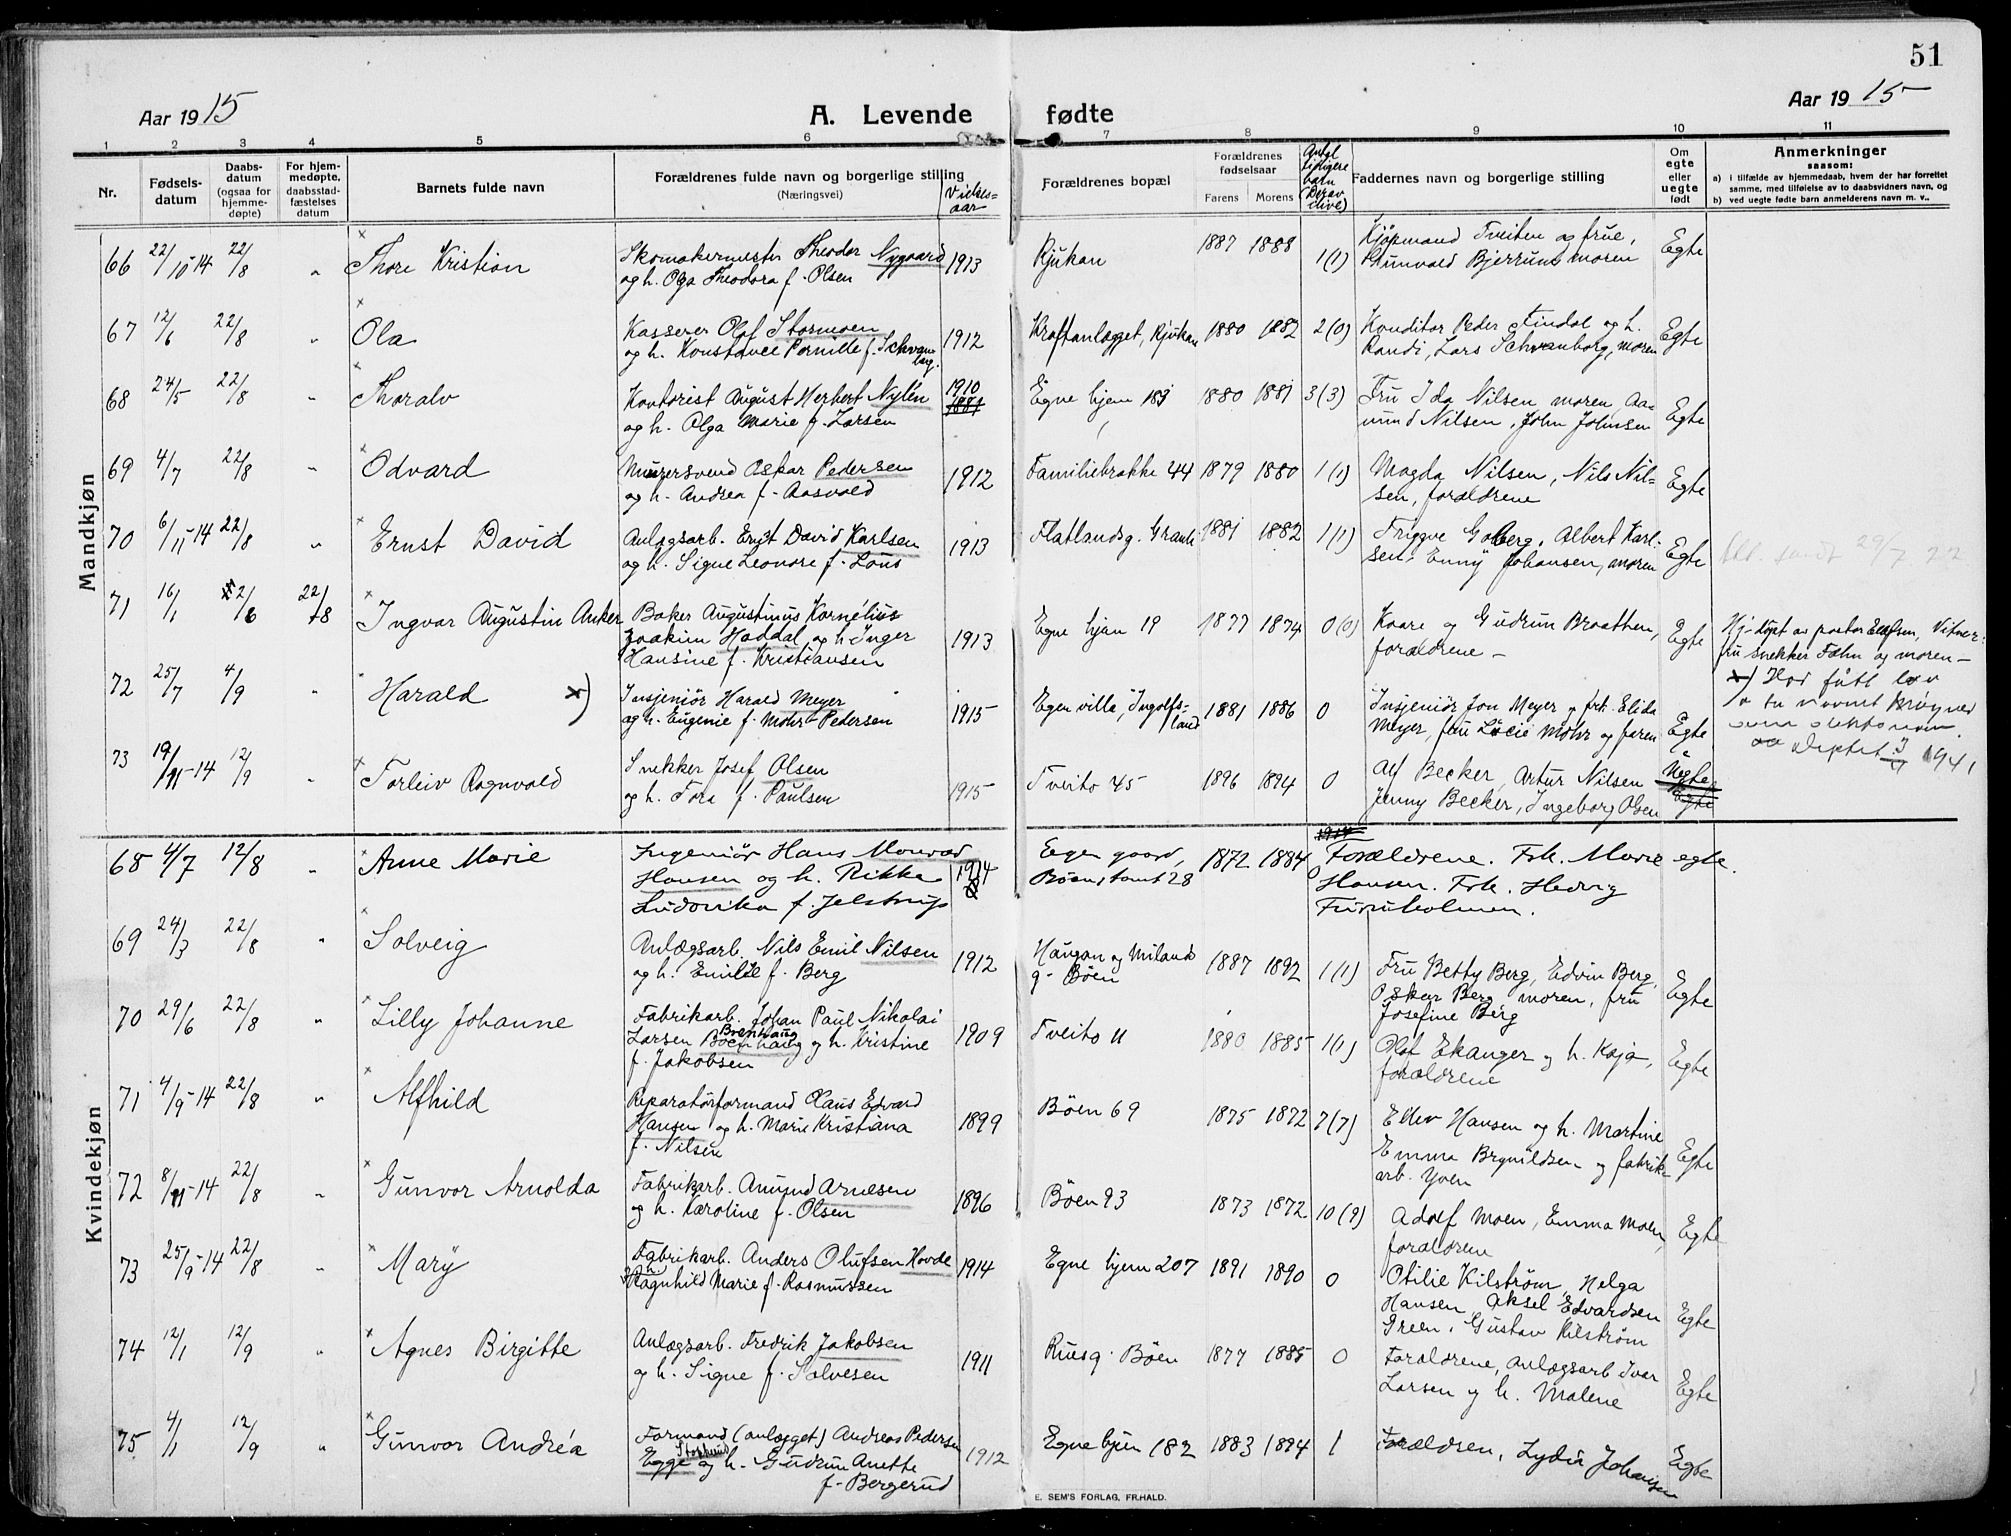 51
Aar 1915
A. Levende fødte
Aar 1915
1 2 3 4 5 6 7 8 9 10 11
Nr.
Fødsels-
datum
Daabs-
datum
(ogsaa for
hjemme-
døpte)
For hjem-
medøpte,
daabsstad-
fæstelses
datum
Barnets fulde navn
Forældrenes fulde navn og borgerlige stilling
(Næringsvei)
Vielses-
aar
Forældrenes bopæl
Forældrenes
fødselsaar
Farens Morens
Antal
tidligere
barn
(Derav
i live)
Faddernes navn og borgerlige stilling
Om
egte
eller
uegte
født
Anmerkninger
saasom:
a) i tilfælde av hjemmedaab, hvem der har forrettet
samme, med tilføielse av to daabsvidners navn, og
b) ved uegte fødte barn anmelderens navn m. v..
Mandkjøn
66 22/10-14 22/8 " Thore Kristian
Skomakermester Theodor Nygaard
og h. Olga Theodora f. Olsen
1913 Rjukan 1887 1888 1(1)
Kjøpmand Tveiten og frue,
Bjerrum moren
Egte
67 12/6 22/8 " Ola
Kasserer Olaf Stormoen
og h. Konstance Pernille f. Schwan-
borg.
1912 Kraftanlægget, Rjukan 1880 1882 2(0)
Konditor Peder Tindal og h.
Randi, Lars Schwanborg, moren
Egte
68 24/5 22/8 " Thoralv
Kontorist August Herbert Nylén
og h. Olga Marie f. Larsen
1910
1881
Egne hjem 183 1880 1881 3(3)
Fru Ida Nilsen, moren, Aa-
mund Nilsen, John Johnsen
Egte
69 4/7 22/8 " Odvard
Murersvend Oskar Pedersen
og h. Andrea f. Aasvold
1912 Familiebrakke 44 1879 1880 1(1)
Magda Nilsen, Nils Nil-
sen, forældrene
Egte
70 6/11-14 22/8 " Ernst David
Anlægsarb. Ernst David Karlsen
og h. Signe Leonore f. Löns
1913 Flatlandsg. Graali 1881 1882 1(1)
Trygve Goberg, Albert Karl-
sen, Enny Johansen, moren
Egte
29/7 22
71 16/1 2/6 22/8 Ingvar Augustin Anker
Baker Augustinus Kornelius
Joakim Haddal og h. Inger
Hansine f. Kristiansen
1913 Egne hjem 19 1877 1874 0(0)
Kaare og Gudrun Braathen,
forældrene -
Egte
Hj-døpt av pastor Elefsen, Vitner:
fru snekker Fæhn og moren -
72 25/7 4/9 " Harald x)
Insjeniør Harald Meyer
og h. Eugenie f. Mohr Pedersen
1915 Egen villa, Ingolfs-
land 1881 1886 0
Insjeniør Jon Meyer og frk. Elida
Meyer, fru Lucie Mohr og faren
Egte
x) Har fått lov
til navnet
som slektsnavn.
1941
73 19/11-14 12/9 " Torleiv Ragnvald
Snekker Josef Olsen
og h. Tora f. Paulsen
1915 Tveito 45 1896 1894 0
Alf Becker, Artur Nilsen
Jenny Becker, Ingeborg Olsen
Uegte
Egte
Kvindekjøn
68 4/7 12/8 " Anne Marie
Ingeniør Hans Monrad
Hansen og h. Rikke
Ludovika f. Jelstrup
1914
Egen gaard,
Bøen tomt 28 1872 1884 0
1914
Forældrene. Frk. Marie
Hansen. Frk. Hedvig
Furuholmen.
egte.
69 24/3 22/8 " Solveig
Anlægsarb. Nils Emil Nilsen
og h. Emilie f. Berg
1912 Haugan og Milands
g. Bøen 1887 1892 1(1)
Fru Betty Berg, Edvin Berg,
Oskar Berg, moren, fru
Josefine Berg
Egte
70 29/6 22/8 " Lilly Johanne
Fabrikarb. Johan Paul Nikolai
Brenhaug
Larsen Bœnhaug og h. Kristine
f. Jakobsen
1909 Tveito 11 1880 1885 1(1)
Olaf Ekanger og h. Kaja,
forældrene
Egte
71 4/9-14 22/8 " Alfhild
Reparatørformand Claus Edvard
Hansen og h. Marie Kristiana
f. Nilsen
1899 Bøen 69 1875 1872 7(7)
Ellev Hansen og h. Martine
Emma Brynildsen og fabrik-
arb. Yven
Egte
72 8/11-14 22/8 " Gunvor Arnolda
Fabrikarb. Amund Arnesen
og h. Karoline f. Olsen
1896 Bøen 93 1873 1872 10(9)
Adolf Moen, Emma Moen,
forældrene
Egte
73 25/9-14 22/8 " Mary
Fabrikarb. Anders Olufsen Hovde
og h. Ragnhild Marie f. Rasmussen
1914 Egne hjem 207 1891 1890 0
Otilie Kilström, Helga
Hansen, Aksel Edvardsen
Green, Gustav Kilström
Egte
74 12/1 12/9 " Agnes Birgitte
Anlægsarb. Fredrik Jakobsen
og h. Signe f. Solvesen
1911 Ruesg. Bøen 1877 1885 0
Forældrene, anlægsarb Ivar
Larsen og h. Malene
Egte
75 4/1 12/9 " Gunvor Andréa
Formand (anlægget) Andreas Pedersen
Egge og h. Gudrun Anette
f. Bergerud
1912 Egne hjem 182 1883 1894 1
Forældren, Lydia Johansen
Egte
E. SEM'S FORLAG, FR.HALD.